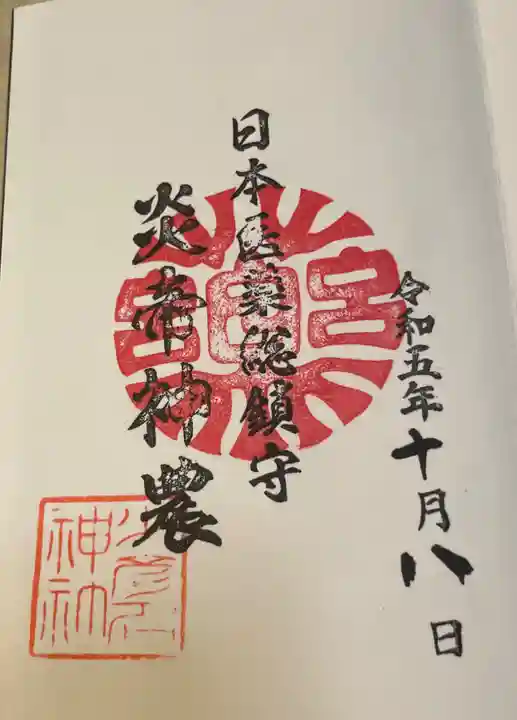 令和五年十月八日
日本医薬総鎮守
炎帝神農
神社